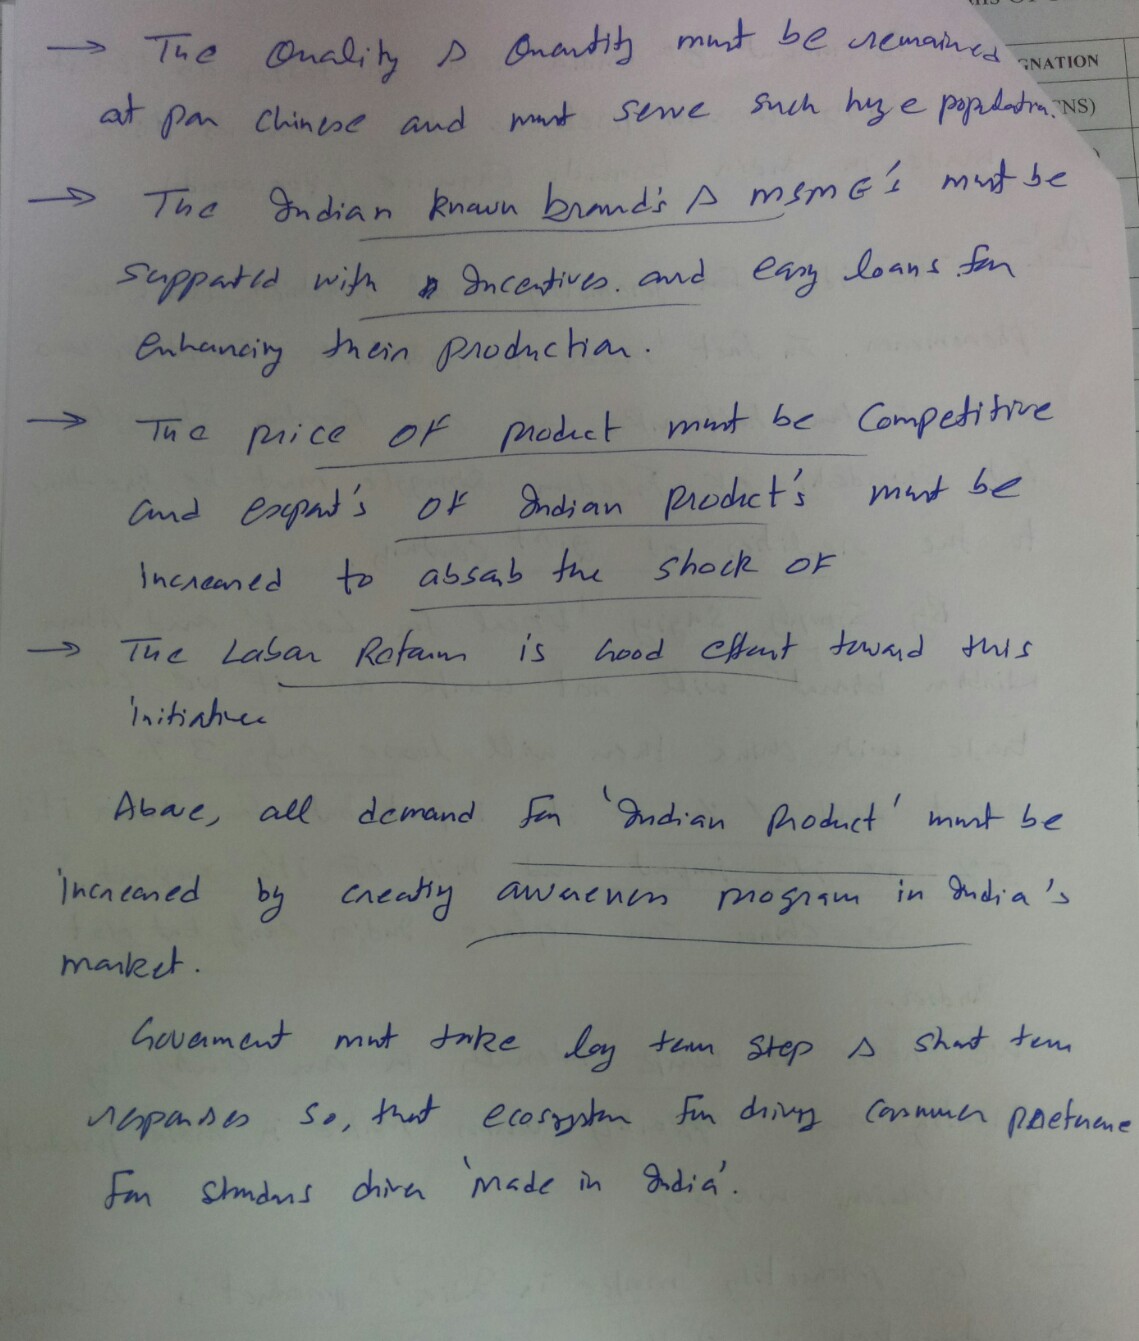 GNATION
NS)
→ The Quality & Quantity must be remained
at par Chinese and must serve such huge population.
→ The Indian known brand's & MSME's must be
supported with Incentives. and easy loans for
enhancing their production.
→ The price of product must be Competitive
and export's of Indian Product's must be
increased to absorb the shock of
→ The Labour Reform is Good effort toward this
initiative
Above, all demand for 'Indian Product' must be
increased by creating awareness program in India's
market.
Government must take long term step & short term
responses so, that ecosystem for driving consumer
for driven 'made in India'.